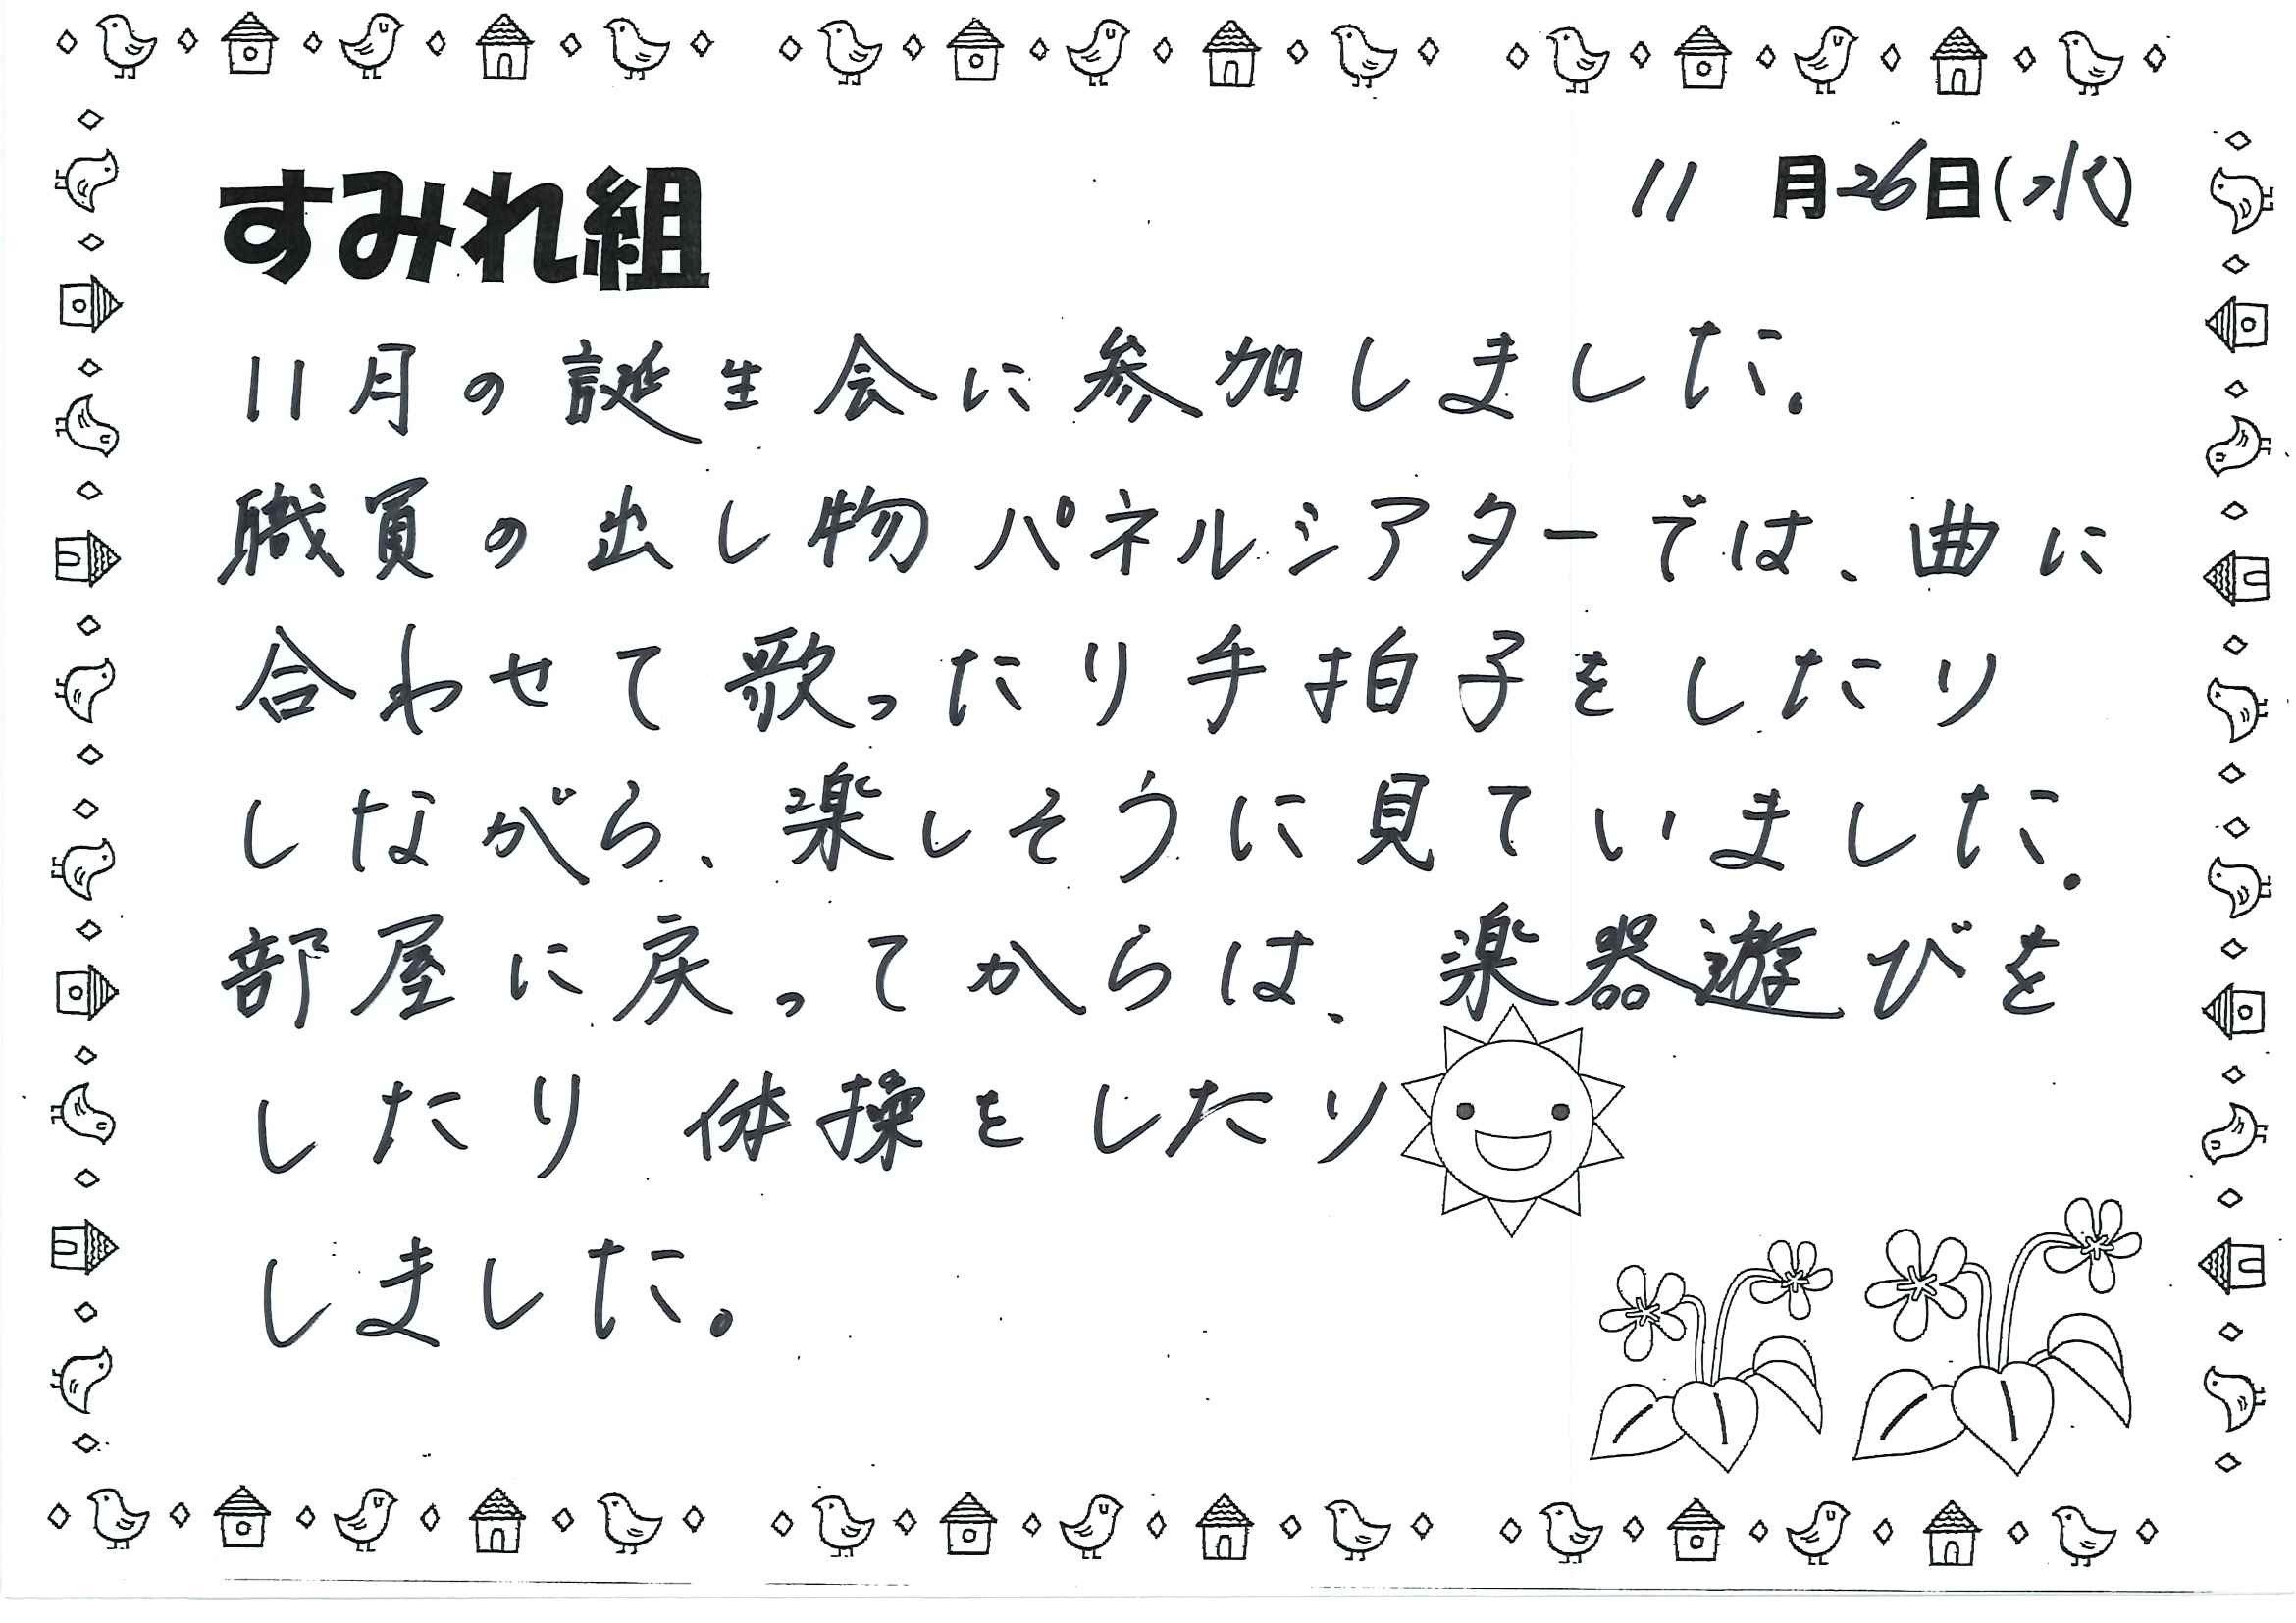 すみれ組
11月26日(水)
11月の誕生会に参加しました。
職員の出し物パネルシアターでは、曲に
合わせて歌ったり手拍子をしたり
しながら、楽しそうに見ていました。
部屋に戻ってからは、楽器遊びを
したり体操をしたり
しました。